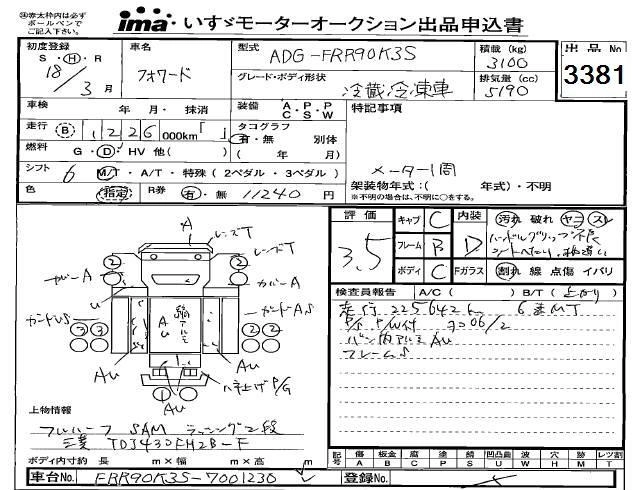 ※赤太枠内は必ず
ボールペンで
ご記入下さい。
ima いすゞモーターオークション出品申込書
初度登録 車名 型式 ADG-FRR90K3S 積載 (kg) 3100 出品No
S・H・R 18/3月 フォワード グレード・ボディ形状 冷蔵冷凍車 排気量 (cc) 5190 3381
車検 年 月・抹消 装備 A・P・P C・S・W 特記事項
走行 B 1226 000km「 」 タコグラフ 有・無 別体
燃料 G・D・HV 他( ) ( 年 月)
シフト 6 M/T・A/T・特殊 (2ペダル・3ペダル) メーター1周
架装物年式:( 年式)・不明
色 指定 R券 有・無 11240 円 ※不明の場合は、不明に○をする。
評価 3.5 キャブ C 内装 D 汚れ 破れ ヤニ スレ
フレーム B ハンドルグリップ不良
ボディ C Fガラス 割れ 線 点傷 イバリ
検査員報告 A/C( ) B/T(上がり)
走行 225642k 6速MT
P/S P/W付 ヨコ06/2
バン内アルミ AU
フレームS
A
レンズT レンズT
② ②
カバーA カバーA
U
ガードUS ガードAS
A
U
AU AU
ハネ上げP/G
AU
上物情報
フルハーフ SAM ラッシング2段
三菱 TDJ430FH2B-F
ボディ内寸約 長 m×幅 m×高 m
記号 傷 A 板金 B 腐 C 塗 P 錆 S 凹凸曲 U 波 W 穴 H 跡 M レツ割 T
車台No. FRR90K3S-7001230 登録No.